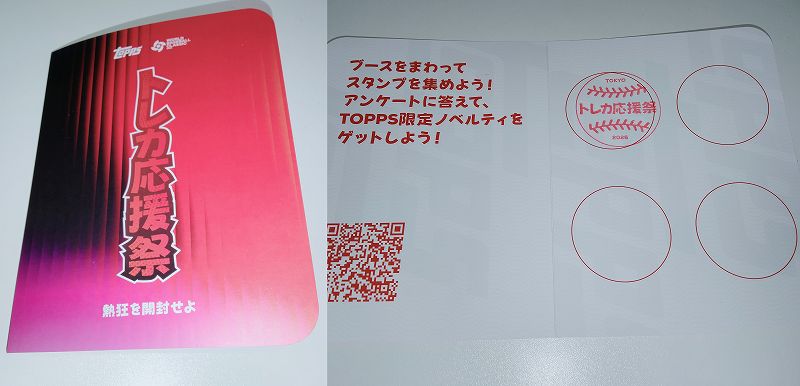 TOPPS
WORLD
BASEBALL
CLASSIC
トレカ応援祭
熱狂を開封せよ
ブースをまわって
スタンプを集めよう!
アンケートに答えて、
TOPPS限定ノベルティを
ゲットしよう!
TOKYO
トレカ応援祭
2026